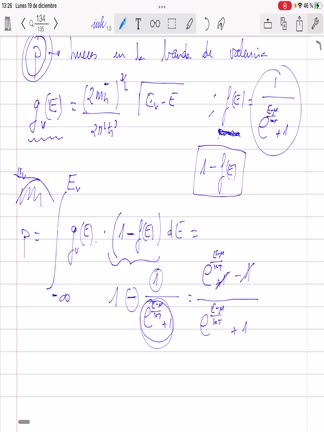 13:26 Lunes 19 de diciembre 46 %
134
135
p → huecos en la banda de valencia
g_v(E) = (2m_h)^{3/2} / 2π²ħ³ √(E_v - E) ; f(E) = 1 / (e^{(E-μ)/kT} + 1)
1 - f(E)
E_v
p = ∫_{-∞}^{E_v} g_v(E) · (1 - f(E)) dE =
1 - 1 / (e^{(E-μ)/kT} + 1) = (e^{(E-μ)/kT} + 1 - 1) / (e^{(E-μ)/kT} + 1)